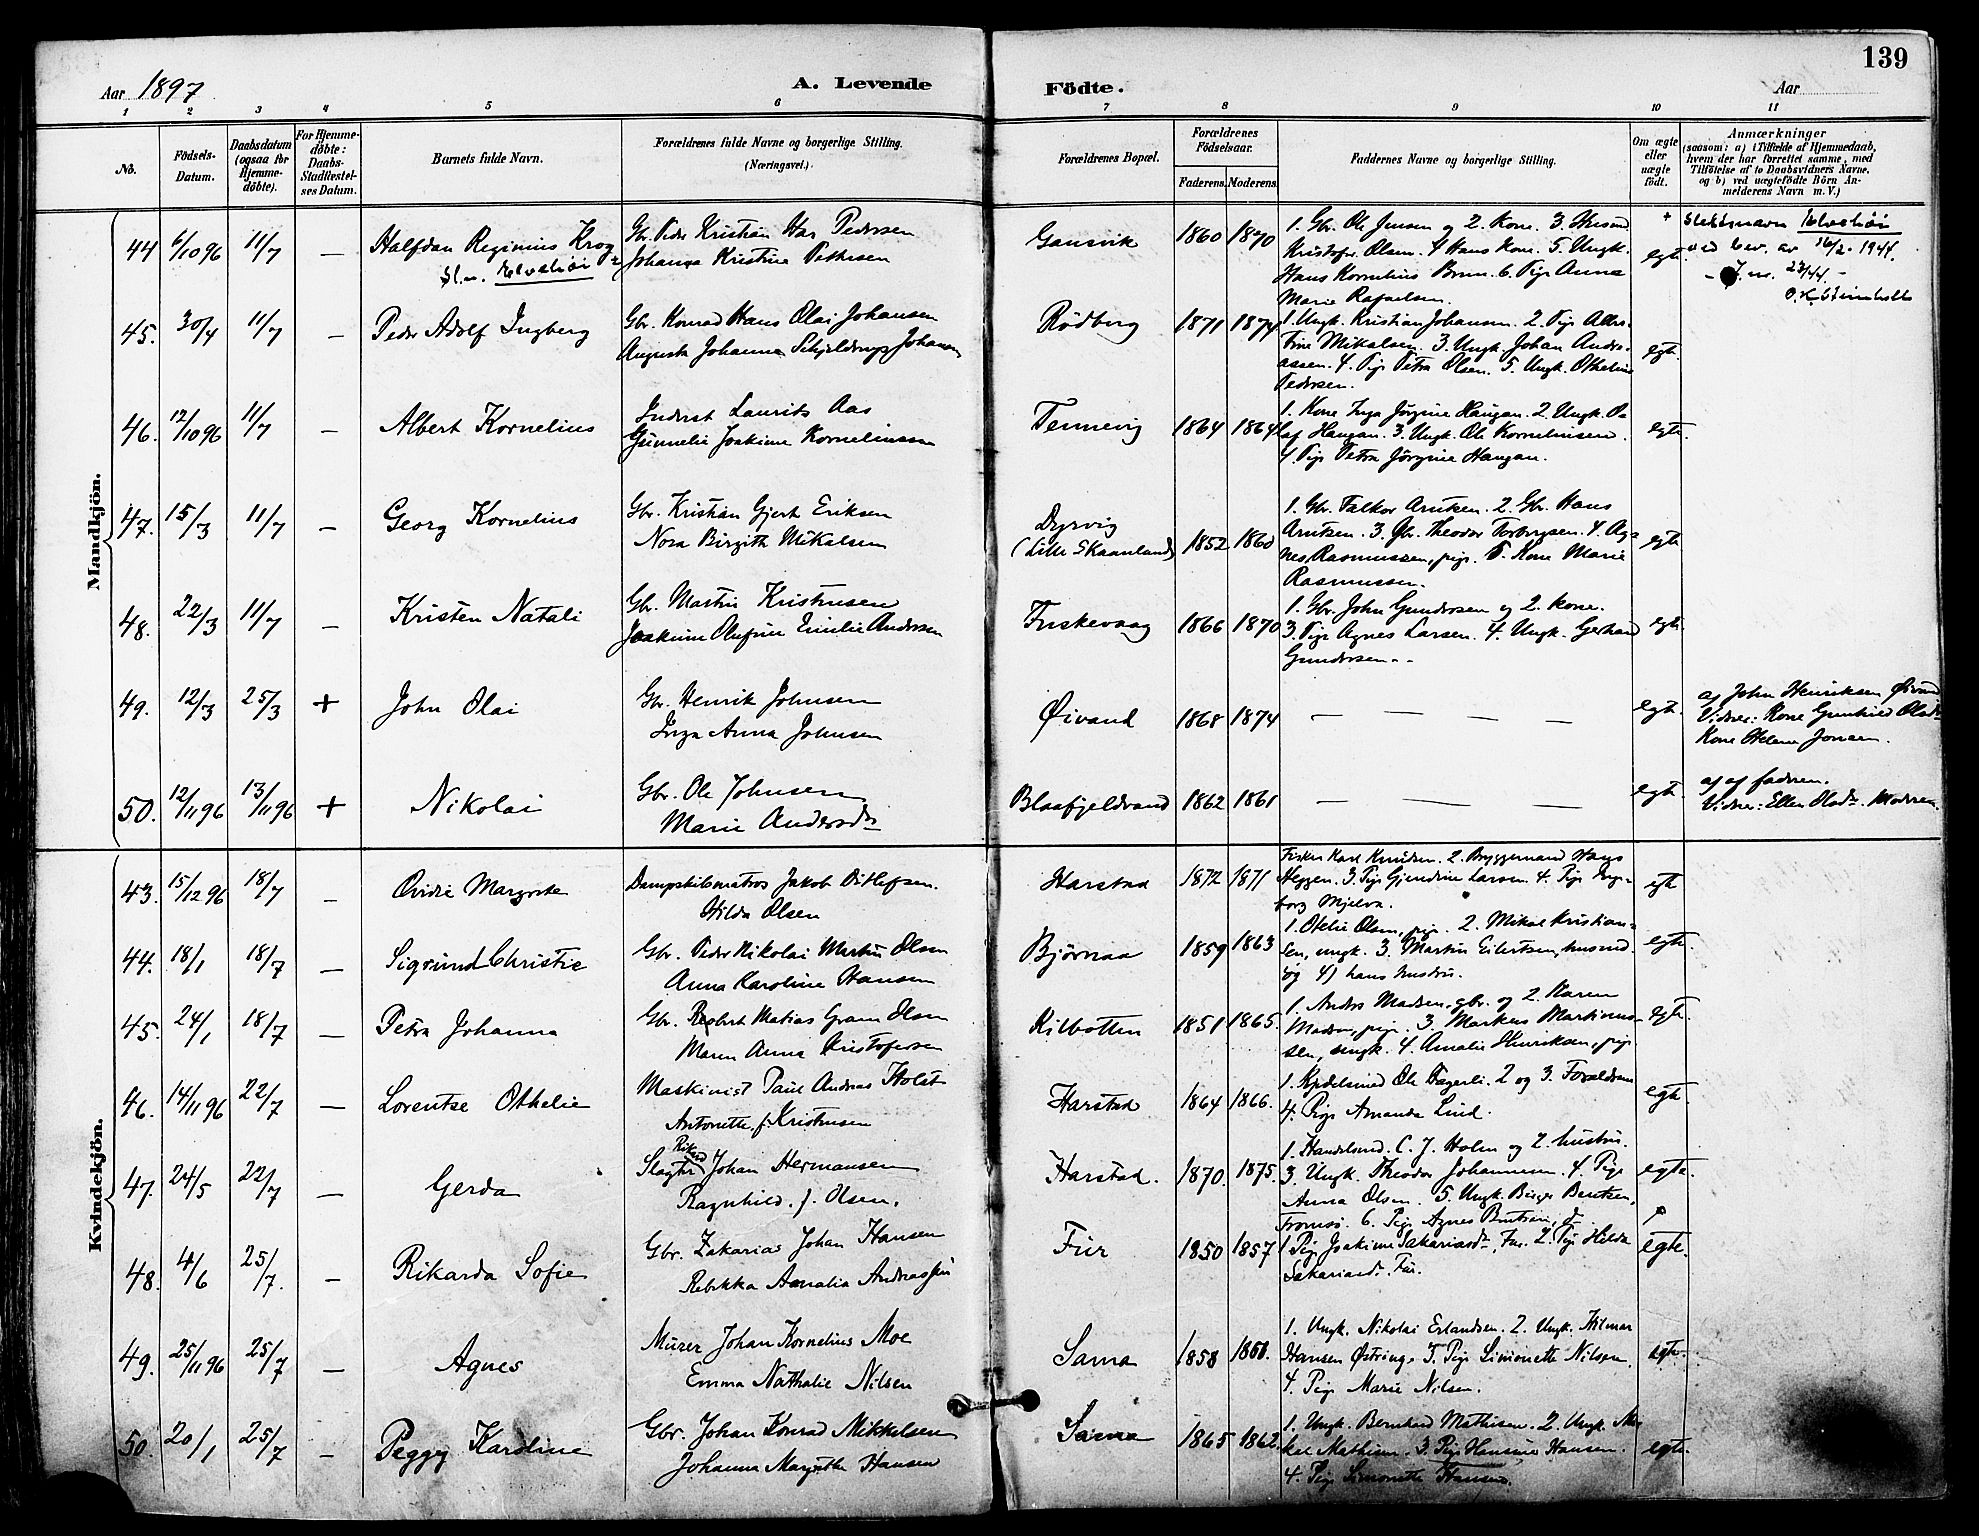 139
Aar 1897
A. Levende
Födte.
Aar
1 2 3 4 5 6 7 8 9 10 11
No.
Födsels-
Datum.
Daabsdatum
(ogsaa for
Hjemme-
döbte).
For Hjemme-
döbte:
Daabs-
Stadfæstel-
ses Datum.
Barnets fulde Navn.
Forældrenes fulde Navne og borgerlige Stilling.
(Næringsvei.)
Forældrenes Bopæl.
Forældrenes
Födselsaar.
Faderens. Moderens.
Faddernes Navne og borgerlige Stilling.
Om ægte
eller
uægte
födt.
Anmærkninger
(saasom: a) i Tilfælde af Hjemmedaab,
hvem der har forrettet samme, med
Tilföielse af to Daabsvidners Navne,
og b) ved uægtefödte Börn An-
melderens Navn m. V.)
Mandkjön.
44 6/10 96 11/7 — Halfdan Reginius Krog
Sl.n. Elvebøi
Gbr. Peder Kristian Har Pedersen
Johanna Kristine Pettersen
Gansvik 1860 1870
1. Gbr. Ole Jensen og 2. Kone. 3. Husmd
Kristofer Olsen. 4 Hans kone. 5. Ungk.
Hans Kornelius Brun. 6. Pige Anna
Marie Rafaelsen.
egt.
+ Slektsnavn
ved bev. av 16/2. 1944.
45. 30/4 11/7 — Peder Adolf Ingberg
Gbr. Konrad Hans Olai Johansen
Augusta Johanna Schjelderup Johansen
Rödberg 1871 1874
1. Ungk. Kristian Johansen. 2. Pige Alber-
tine Mikalsen. 3. Ungk. Johan Andre-
assen. 4. Pige Petra Olsen. 5. Ungk. Otheline
Pedersen.
egt.
46. 12/10 96 11/7 — Albert Kornelius
Inderst Laurits Aas
Gunnelie Joakime Korneliussen
Tennevig 1864 1864
1. Kone Inga Jörgine Haugan. 2. Ungk. O-
af Haugan. 3. Ungk. Ole Korneliusen.
4. Pige Petra Jörgine Haugan.
egte.
47. 15/3 11/7 — Georg Kornelius
Gbr. Kristian Gjert Eriksen
Nora Birgith Mikalsen
Dyrvig
(Lille Skaanland) 1852 1860
1. Gbr. Falkor Arntzen. 2 Gbr. Hans
Arntzen. 3. Gbr. Theodor Torbergsen. 4. Ag-
nes Rasmussen, pige. 5. Kone Marie
Rasmussen.
egte
48. 22/3 11/7 — Kristen Natali
Gbr. Martin Kristensen
Joakime Olufine Emilie Andersen
Fuskevaag 1866 1870
1. Gbr. John Gundersen og 2. kone.
3. Pige Agnes Larsen. 4. Ungk. Gerhard
Gundersen.
egte
49. 12/3 25/3 + John Olai
Gbr. Henrik Johnsen
Inga Anna Johnsen
Øivand 1868 1874
— — — —
egt.
af John Henriksen Øivand
Vidner: Kone Gunhild Olsd.
Kone Helene Jonsen.
50. 12/11 96 13/11 96 + Nikolai
Gbr. Ole Johnsen
Marie Andersdtr
Blaafjeldrand 1862 1861
— — — —
egt.
af faderen.
Vidner: Ellen Olsdr. Moderen.
Kvindekjön.
43. 15/12 96 18/7 — Ovidie Margrete
Dampskibsmatros Jakob Ditlefsen.
Hilda Olsen
Harstad 1872 1871
Fisker Karl Knudsen. 2. Bryggemand Hans
Heggen. 3. Pige Gjendine Larsen. 4. Pige Inge-
borg Mjelva.
egt
44. 18/1 18/7 — Sigrund Christie
Gbr. Peder Nikolai Martin Olsen
Anna Karoline Hansen
Bjørnaa 1859 1863
1. Otelie Olsen, pige. 2. Mikal Kristian-
sen, ungk. 3. Martin Eilertsen, husmd.
og 4) hans hustru.
egte.
45. 24/1 18/7 — Petra Johanna
Gbr. Robert Matias Gram Olsen
Maren Anna Kristofersen
Kilbotten 1851 1865.
1. Anders Madsen, gbr. og 2. Karen
Madsen, pige. 3. Markus Martinus-
sen, ungk. 4. Amalie Henriksen, pige
egt.
46. 14/11 96 22/7 — Lorentse Othelie
Maskinist Paul Andreas Holst
Antonette f. Kristensen
Harstad 1864 1866.
1. Kjedelsmed Ole Fagerli. 2 og 3. Forældrene
4. Pige Amanda Lind.
egte.
47. 24/5 22/7 — Gerda
Slagter Rikard Johan Hermansen
Ragnhild f. Olsen.
Harstad. 1870. 1875.
1. Handelsmd. C. J. Holm og 2. hustru.
3. Ungk. Theodor Johannesen. 4. Pige
Anna Olsen. 5. Ungk. Birger Bentzen,
Tromsø. 6. Pige Agnes Bentzen, do
egte.
48. 4/6 25/7. — Rikarda Sofie
Gbr. Zakarias Johan Hansen
Rebekka Amalia Andreassen
Fur 1850 1857
1. Pige Joakime Sakariasdr, Fur. 2. Pige Hilda
Sakariasd. Fur.
egte.
49. 25/11 96 25/7 — Agnes
Murer Johan Kornelius Moe
Emma Nathalie Nilsen
Sama 1858
1. Ungk. Nikolai Erlandsen. 2. Ungk. Hilmar
Hansen Østring. 3. Pige Simonette Nilsen.
4. Pige Marie Nilsen.
egte.
50. 20/1 25/7 — Peggy Karoline
Gbr. Johan Konrad Mikkelsen
Johanna Margrethe Hansen
Sama 1865 1862.
1. Ungk. Bernhard Mathisen. 2. Ungk. Mi-
kal Mathisen. 3. Pige Hansine Hansen.
4. Pige Simonette Hansen.
egte.